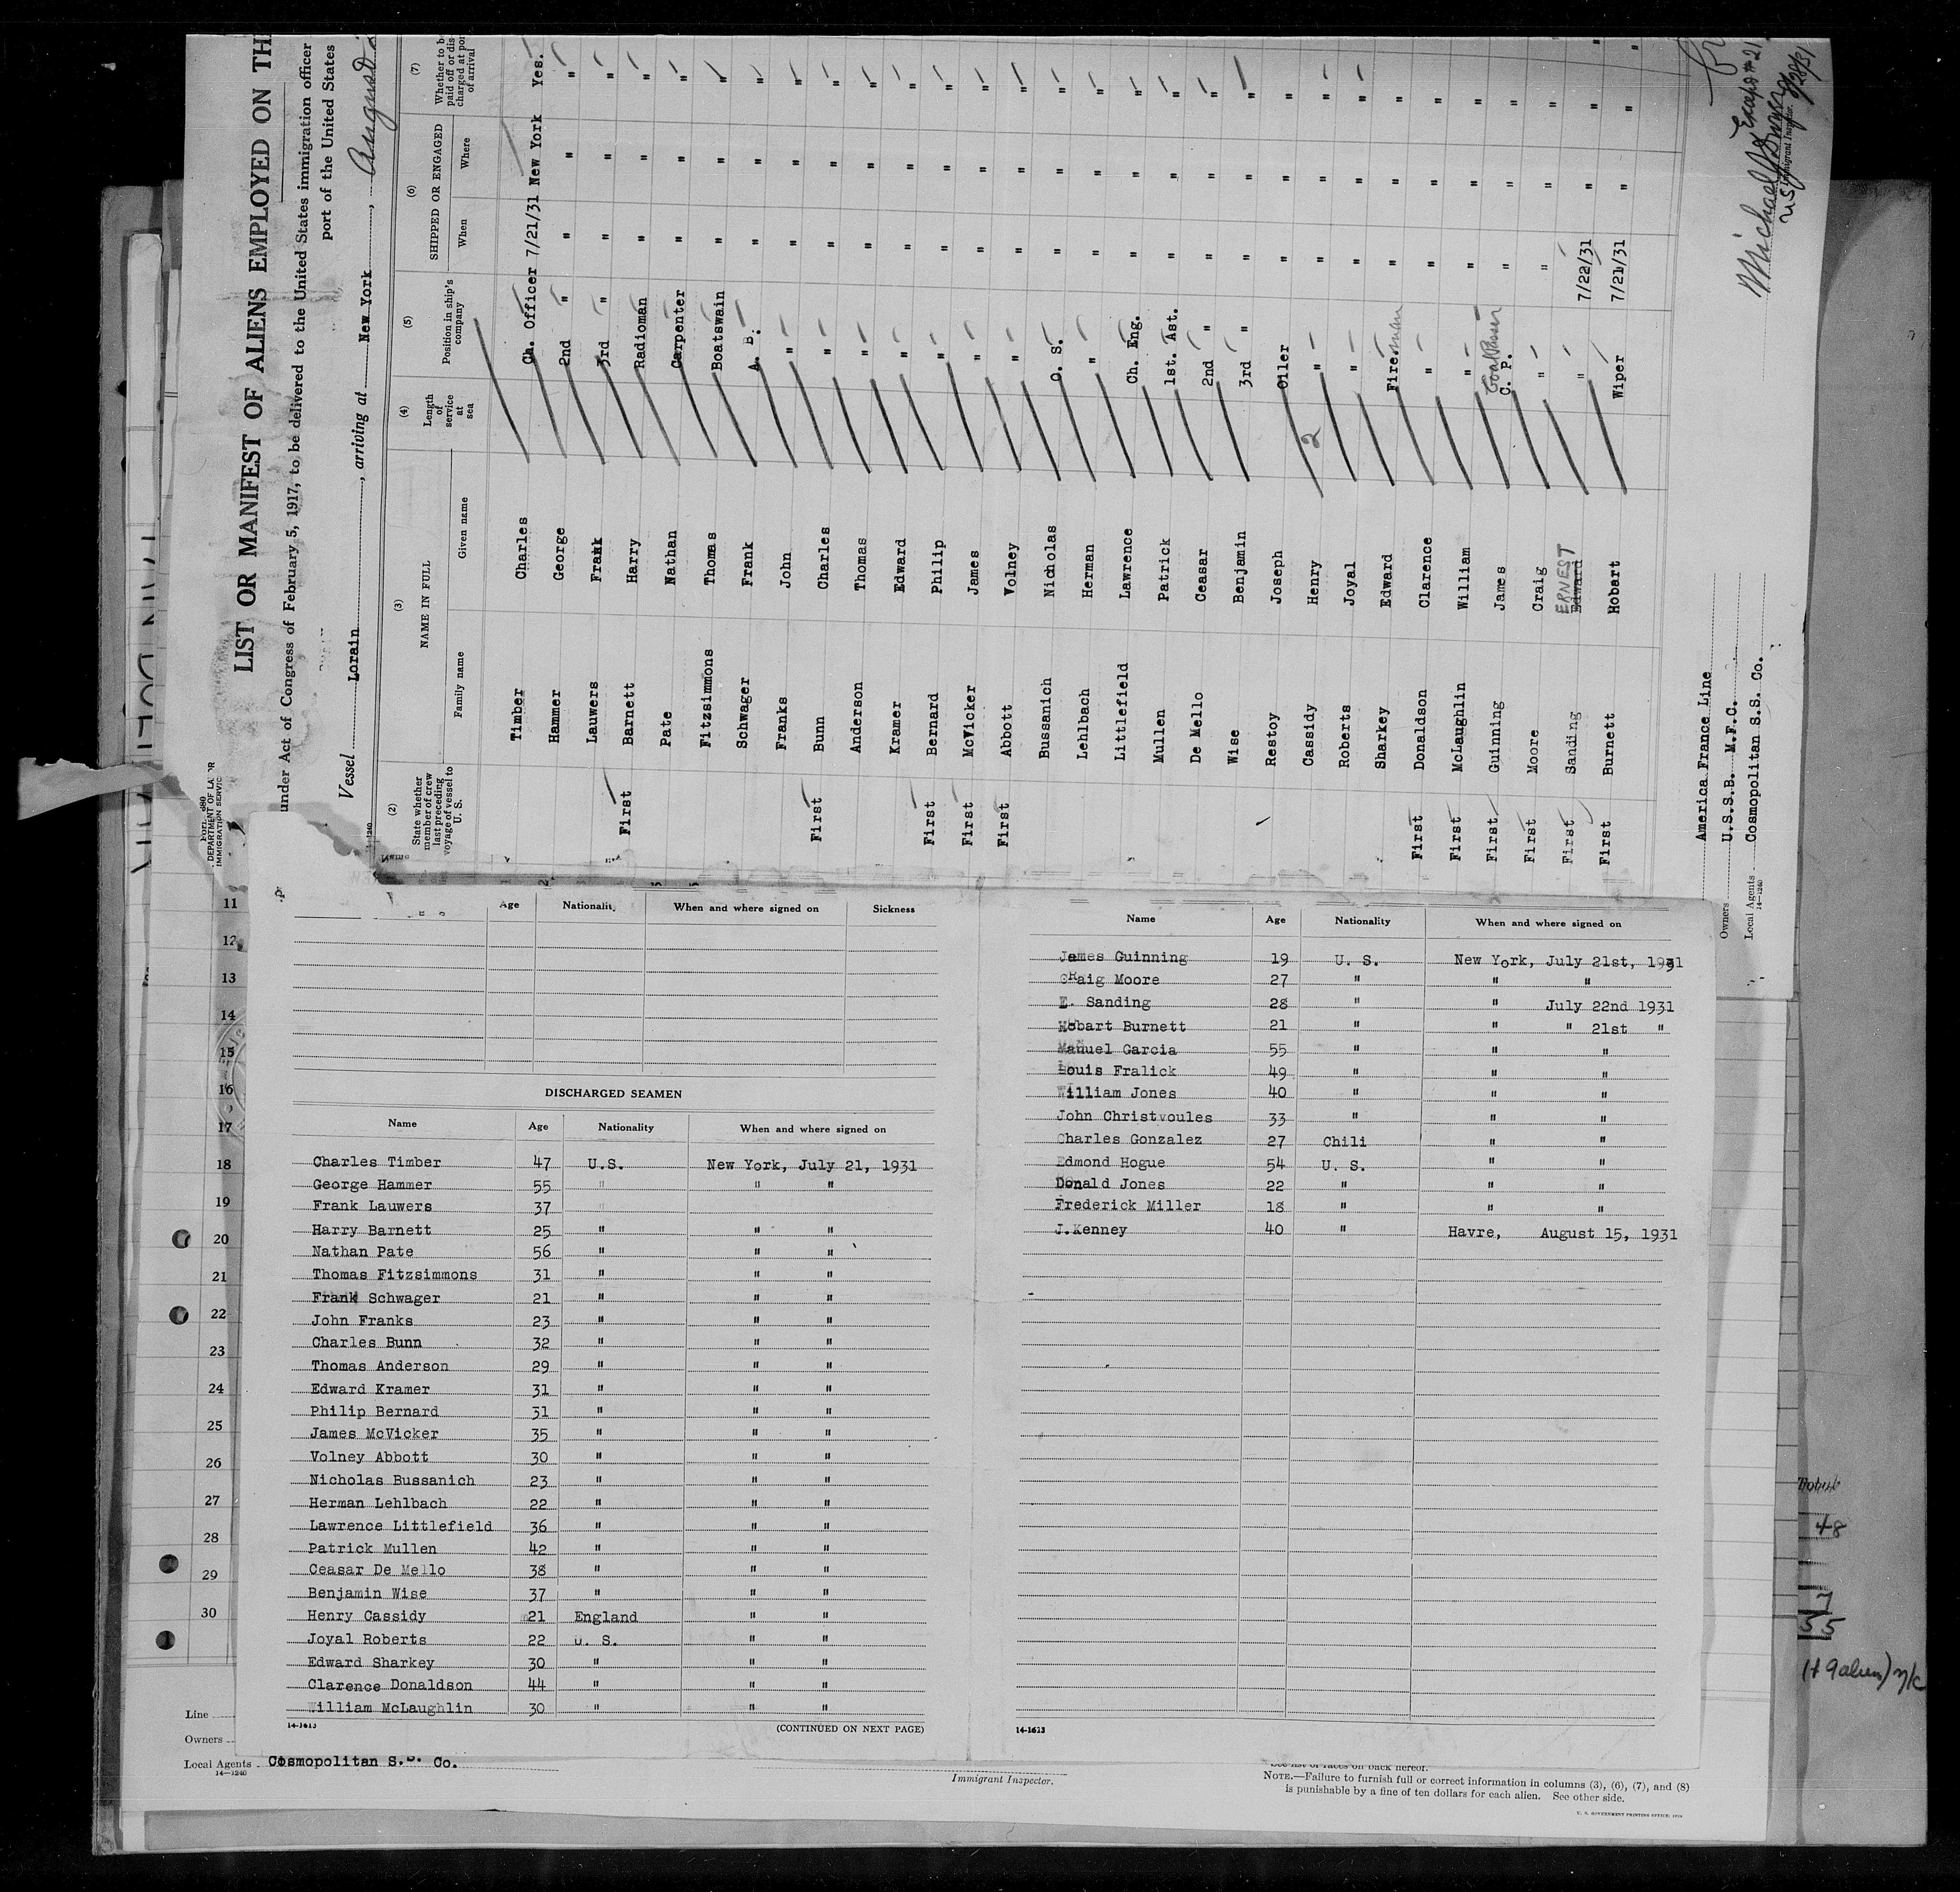 LIST OR MANIFEST OF ALIENS EMPLOYED ON TH
under Act of Congress of February 5, 1917, to be delivered to the United States immigration officer
port of the United States
Vessel Lorain, arriving at New York, August
(2) (3) (4) (5) (6) (7)
State whether member of crew last preceding voyage of vessel to U. S.
NAME IN FULL
Family name Given name
Length of service at sea
Position in ship's company
SHIPPED OR ENGAGED
When Where
Whether to be paid off or dis- charged at port of arrival
Timber Charles Ch. Officer 7/21/31 New York Yes.
Hammer George 2nd " " " "
Lauwers Frank 3rd " " " "
First Barnett Harry Radioman " " "
Pate Nathan Carpenter " " "
Fitzsimmons Thomas Boatswain " " "
Schwager Frank A. B. " " "
Franks John " " " "
First Bunn Charles " " " "
Anderson Thomas " " " "
Kramer Edward " " " "
First Bernard Philip " " " "
First McVicker James " " " "
First Abbott Volney " " " "
Bussanich Nicholas O. S. " " "
Lehlbach Herman " " " "
Littlefield Lawrence Ch. Eng. " " "
Mullen Patrick 1st. Ast. " " "
De Mello Ceasar 2nd " " " "
Wise Benjamin 3rd " " " "
Restoy Joseph Oiler " " "
Cassidy Henry 2 " " " "
Roberts Joyal " " " "
Sharkey Edward Fireman " " "
First Donaldson Clarence " " " "
First McLaughlin William " " " "
First Guinning James Coal Passer C. P. " " "
First Moore Craig " " " "
First Sanding Edward ERNEST " 7/22/31 " "
First Burnett Hobart Wiper 7/21/31 " "
America France Line
Owners U.S.S.B. M.F.C.
Local Agents Cosmopolitan S.S. Co.
14-1240
Immigrant Inspector.
DEPARTMENT OF LABOR
IMMIGRATION SERVIC
11
12
13
14
15
16
17
18
19
20
21
22
23
24
25
26
27
28
29
30
Age Nationality When and where signed on Sickness
DISCHARGED SEAMEN
Name Age Nationality When and where signed on
Charles Timber 47 U.S. New York, July 21, 1931
George Hammer 55 " " "
Frank Lauwers 37
Harry Barnett 25 " " "
Nathan Pate 56 " " "
Thomas Fitzsimmons 31 " " "
Frank Schwager 21 " " "
John Franks 23 " " "
Charles Bunn 32 " " "
Thomas Anderson 29 " " "
Edward Kramer 31 " " "
Philip Bernard 31 " " "
James McVicker 35 " " "
Volney Abbott 30 " " "
Nicholas Bussanich 23 " " "
Herman Lehlbach 22 " " "
Lawrence Littlefield 36 " " "
Patrick Mullen 42 " " "
Ceasar De Mello 38 " " "
Benjamin Wise 37 " " "
Henry Cassidy 21 England " "
Joyal Roberts 22 U. S. " "
Edward Sharkey 30 " " "
Clarence Donaldson 44 " " "
William McLaughlin 30 " " "
14-1613 (CONTINUED ON NEXT PAGE)
Name Age Nationality When and where signed on
James Guinning 19 U. S. New York, July 21st, 1931
Craig Moore 27 " " "
E. Sanding 28 " " July 22nd 1931
Hobart Burnett 21 " " " 21st "
Manuel Garcia 55 " " "
Louis Fralick 49 " " "
William Jones 40 " " "
John Christvoules 33 " " "
Charles Gonzalez 27 Chili " "
Edmond Hogue 54 U. S. " "
Donald Jones 22 " " "
Frederick Miller 18 " " "
J.Kenney 40 " Havre, August 15, 1931
14-1613
Line
Owners
Local Agents Cosmopolitan S.S. Co.
14-1240
Immigrant Inspector.
See list of races on back hereof.
NOTE.—Failure to furnish full or correct information in columns (3), (6), (7), and (8)
is punishable by a fine of ten dollars for each alien. See other side.
U. S. GOVERNMENT PRINTING OFFICE
48
7
55